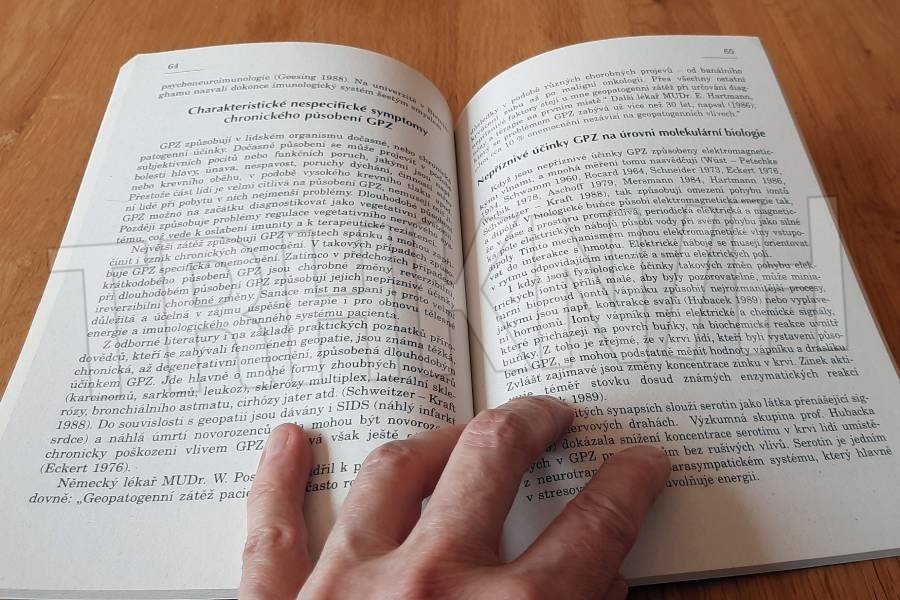 64
psychoneuroimunologie (Geesing 1988). Na univerzitě v
ghamu nazvali dokonce imunologický systém šestým smyslem.
Charakteristické nespecifické symptomy
chronického působení GPZ
GPZ způsobují v lidském organismu dočasné, nebo chronické
patogenní účinky. Dočasné působení se může projevit v podobě
subjektivních pocitů nebo funkčních poruch, jakými jsou např.
bolesti hlavy, únava, nespavost, poruchy dýchání, činnosti srdce
nebo krevního oběhu, v podobě vysokého krevního tlaku apod.
Přestože část lidí je velmi citlivá na působení GPZ, nemusí
ní lidé při pobytu v nich nejmenší problémy. Dlouhodobá působení
GPZ možno na začátku diagnostikovat jako vegetativní dystonii.
Později způsobuje problémy regulace vegetativního nervového
tému, což vede k oslabení imunity a k terapeutické rezistenci.
Největší zátěž způsobují GPZ v místech spánku a mohou
činit i vznik chronických onemocnění. V takových případech způso-
buje GPZ specifická onemocnění. Zatímco v předchozích případech
krátkodobého působení GPZ jsou chorobné změny reverzibilní,
při dlouhodobém působení GPZ způsobují jejich nepříznivé účinky
ireverzibilní chorobné změny. Sanace míst na spaní je proto velmi
důležitá a účelná v zájmu úspěšné terapie i pro obnovu tělesné
energie a imunologického obranného systému pacienta.
Z odborné literatury i na základě praktických poznatků příro-
dovědců, kteří se zabývali fenoménem geopatie, jsou známá těžká,
chronická, až degenerativní onemocnění, způsobená dlouhodobým
účinkem GPZ. Jde hlavně o mnohé formy zhoubných novotvarů
(karcinomů, sarkomů, leukoz, sklerózy multiplex, laterální skle-
rózy, bronchiálního astmatu, cirhózy jater atd. (Schweitzer – Kraft
1988). Do souvislosti s geopatií jsou dávány i SIDS (náhlý infarkt
srdce) a náhlá úmrtí novorozenců, kde mohou být novorozenci
chronicky poškozeni vlivem GPZ však ještě
(Eckert 1976).
Německý lékař MUDr. W. k
dovně: „Geopatogenní zátěž často
65
diabolky v podobě různých chorobných projevů – od banálního
až po maligní onkologii. Přes všechny ostatní
vyvolávající faktory stojí u mne geopatogenní zátěž při určování diag-
nózy a terapie na prvním místě.“ Další lékař MUDr. E. Hartmann,
se problémem GPZ zabývá už více než 30 let, napsal (1986):
10 % onemocnění nezávisí na geopatogenních vlivech.“
Nepříznivé účinky GPZ na úrovni molekulární biologie
Když jsou nepříznivé účinky GPZ způsobeny elektromagnetic-
kými vlnami, a mnohá měření tomu nasvědčují (Wüst – Petschke
Schwamm 1960, Rocard 1964, Schneider 1973, Eckert 1976,
1978, Aschoff 1979, Mersmann 1984, Hartmann 1986,
Schweitzer – Kraft 1988), tak způsobují omezení pohybu iontů
v biologické buňce působí elektromagnetická energie tak,
že se produkují proměnlivá, periodická elektrická a magnetic-
ká pole elektrických nábojů působí tehdy při svém pohybu jako silné
dipoly. Tímto mechanismem mohou elektromagnetické vlny vstupo-
vat do interakce s hmotou. Elektrické náboje se musejí orientovat
v rytmu odpovídajícím intenzitě a směru elektrických polí.
I když jsou fyziologické účinky takových změn pohybu elek-
trických iontů příliš malé, aby byly pozorovatelné, může minia-
turní bioproud iontů vápníku způsobit nejrozmanitější procesy,
jakými jsou např. kontrakce svalů (Hubacek 1989) nebo vyplave-
ní hormonů. Ionty vápníku mění elektrické a chemické signály,
které přicházejí na povrch buňky, na biochemické reakce uvnitř
buňky. Z toho je zřejmé, že v krvi lidí, kteří byli vystaveni působe-
ní GPZ, se mohou podstatně měnit hodnoty vápníku a draslíku.
Zvlášť zajímavé jsou změny koncentrace zinku v krvi. Zinek akti-
vuje téměř stovku dosud známých enzymatických reakcí
1989).
určitých synapsích slouží serotin jako látka přenášející sig-
nervových drahách. Výzkumná skupina prof. Hubacka
dokázala snížení koncentrace serotinu v krvi lidí umístě-
ných v GPZ bez rušivých vlivů. Serotin je jedním
z neurotran parasympatickém systému, který hlavně
v stresov uvolňuje energii.